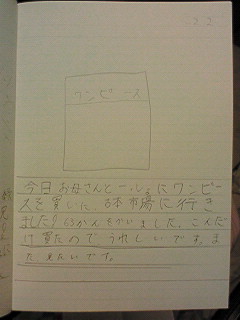 ワンピース
今日お母さんと一しょにワンピー
スを買いに、古本市場に行き
ました。63かんをかいました。こんだ
け買たので、うれしいです。ま
た見たいです。